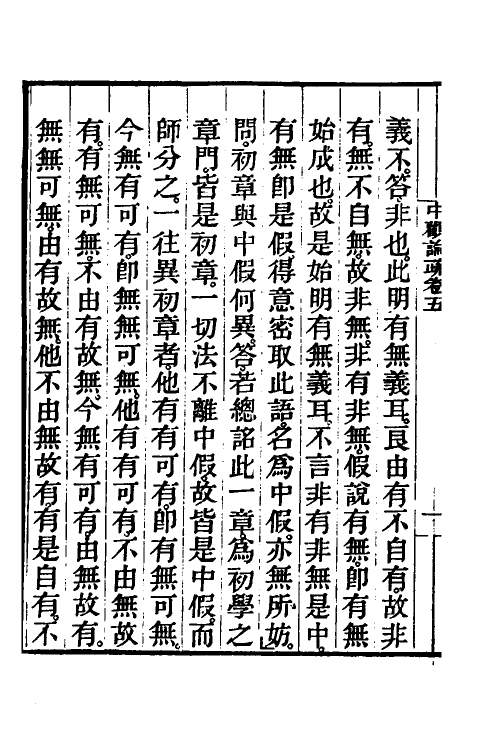 中觀論疏卷五
一
義不。答。非也。此明有無義耳。良由有不自有。故非
有。無不自無。故非無。非有非無。假說有無。卽有無
始成也。故是始明有無義耳。不言非有非無是中。
有無卽是假。得意密取此語。名爲中假。亦無所妨。
問。初章與中假何異。答。若總詺此一章。爲初學之
章門。皆是初章。一切法不離中假。故皆是中假。而
師分之。一往異。初章者。他有有可有。卽有無可無。
今無有可有。卽無無可無。他有有可有。不由無故
有。有無可無。不由有故無。今無有可有。由無故有。
無無可無。由有故無。他不由無故有。有是自有。不